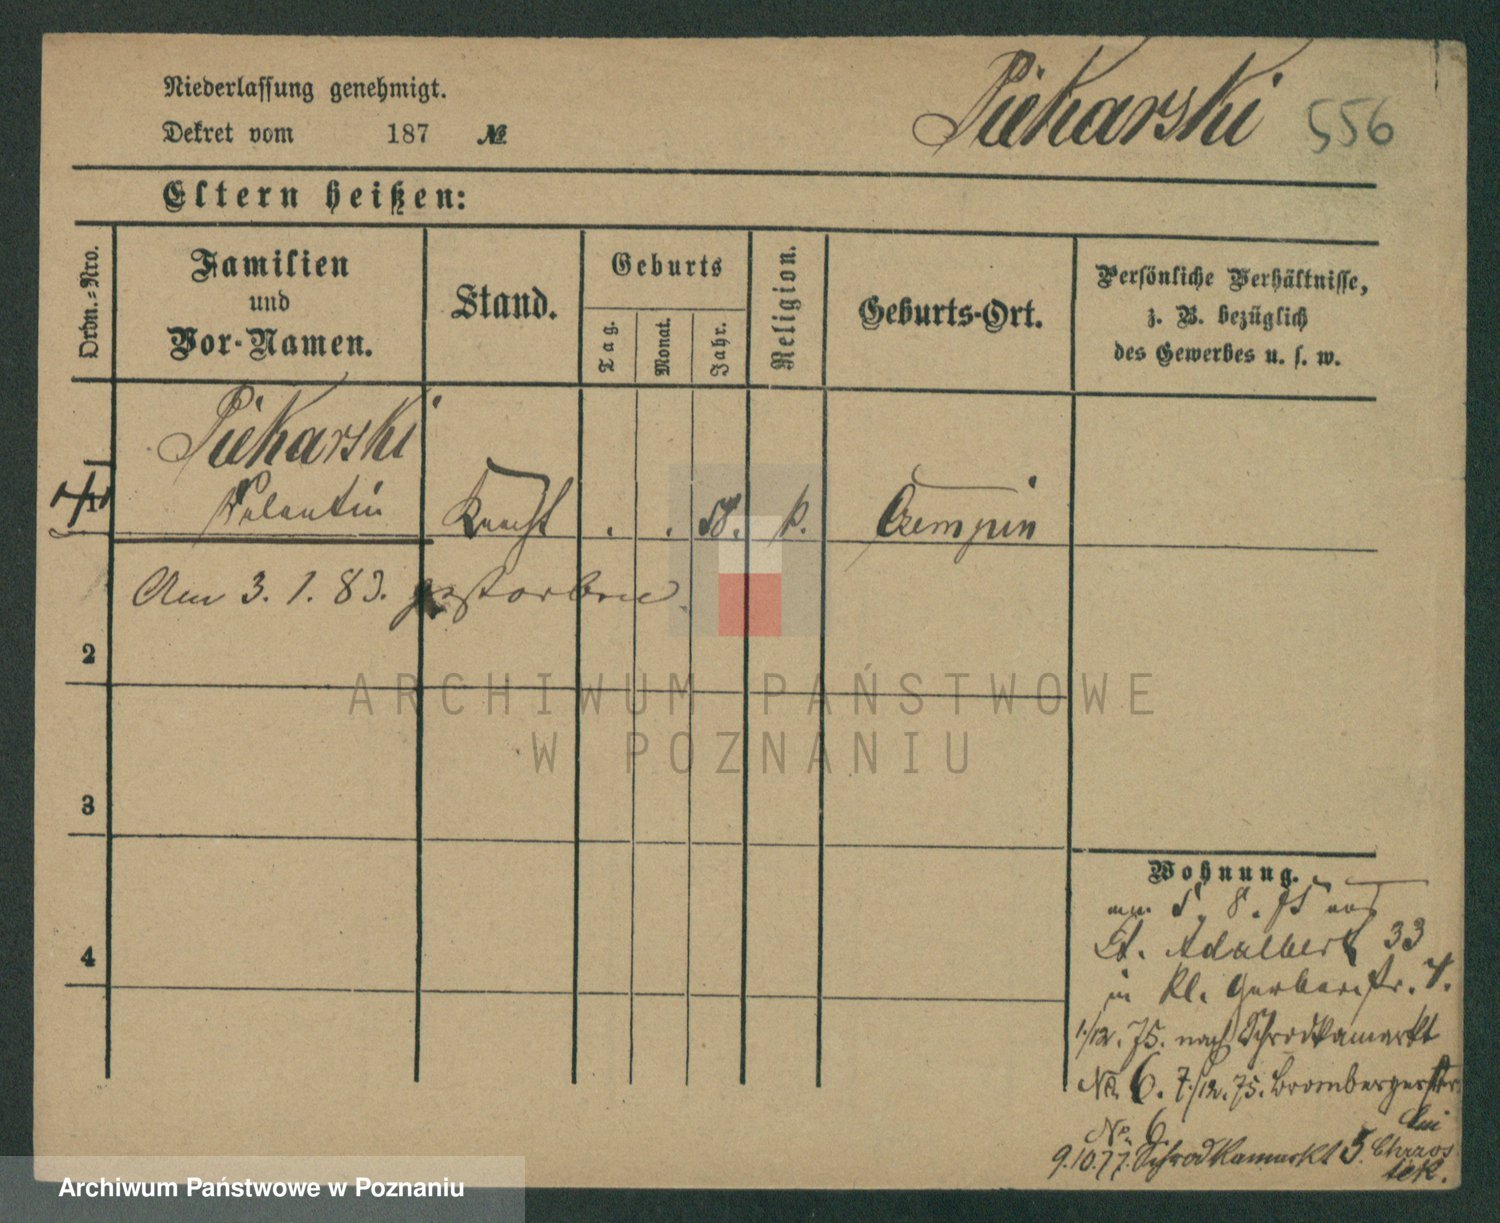 Niederlassung genehmigt.
Dekret vom 187 №
Piekarski 556
Eltern heißen:
Ordn.=Nro.
Familien
und
Vor-Namen.
Stand.
Geburts
Tag.
Monat.
Jahr.
Religion.
Geburts-Ort.
Persönliche Verhältnisse,
z. B. bezüglich
des Gewerbes u. s. w.
Piekarski
1 Valentin Knecht . . 58. k. Czempin
Am 3. 1. 83. gestorben.
2
3
4
Wohnung.
am 5. 8. 75 aus
St. Adalbert 33
in Kl. Gerberstr. 7.
1/12. 75. nach Schrodkamarkt
No 6. 7/12. 75. Brombergerstr
No 6. bei
9.10.77. Schrodkamarkt 5. Chrzos
tek.
ARCHIWUM PAŃSTWOWE
W POZNANIU
Archiwum Państwowe w Poznaniu